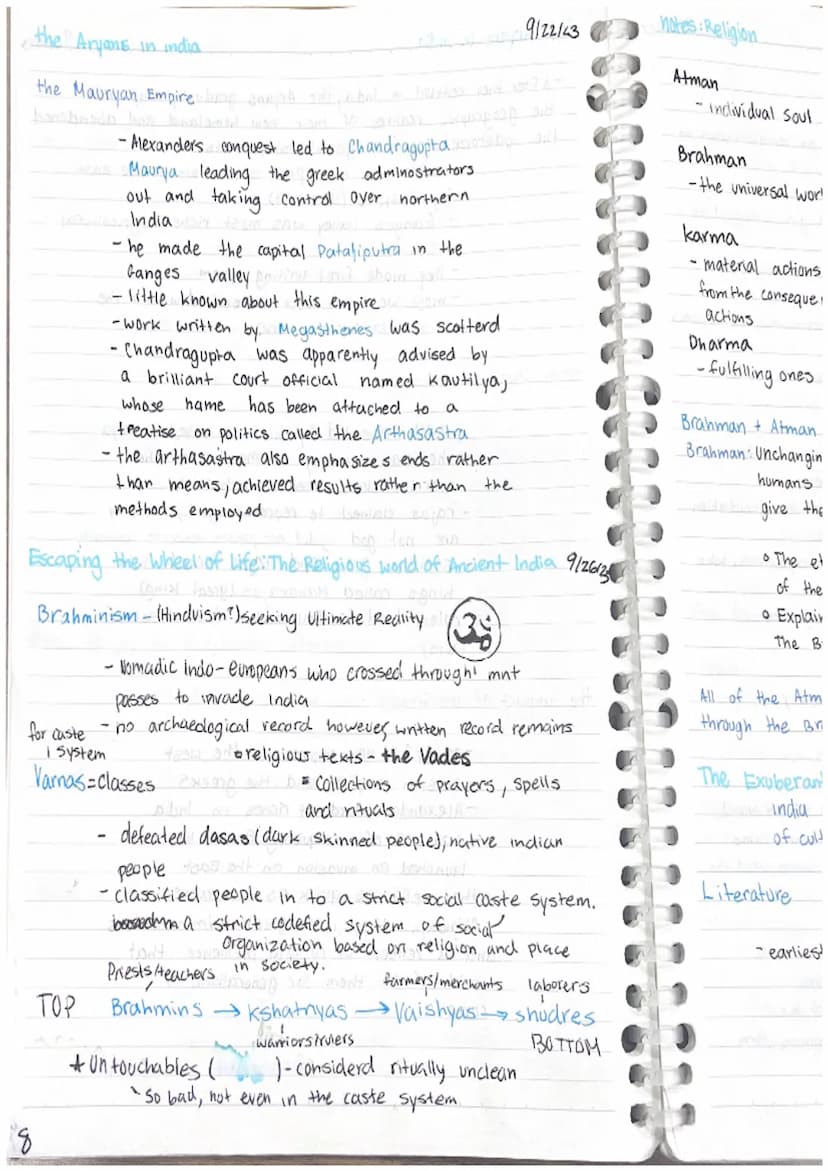 the Aryans in india
9/22/23
the Mauryan Empire
- Alexanders conquest led to Chandragupta
Maurya leading the greek adminostrators
out and taking control over northern
India
- he made the capital Pataliputra in the
Ganges valley
- little known about this empire
- work written by Megasthenes was scatterd
- Chandragupta was apparently advised by
a brilliant court official named Kautilya,
whose name has been attached to a
treatise on politics called the Arthasastra
- the arthasastra also emphasizes ends rather
than means, achieved results rather than the
methods employed
Escaping the Wheel of Life: The Religious World of Ancient India 9/26/23
Brahminism - (Hinduism?) seeking Ultimate Reality
ॐ
- Nomadic indo-europeans who crossed through mnt
passes to invade India
- no archaeological record however, written record remains
for caste
system
religious texts - the Vades
Varnas = classes
collections of prayers, spells
and rituals
- defeated dasas (dark skinned people), native indian
people
- classified people in to a strict social caste system.
a strict codefied system of social
Organization based on religion and place
in society.
Priests/teachers
farmers/merchants laborers
TOP Brahmins → kshatnyas → Vaishyas → shudres
warriors/rulers
BOTTOM
* Untouchables ( ) - considerd ritually unclean
So bad, not even in the caste system
8
notes: Religion
Atman
- individual soul
Brahman
- the universal
karma
- material actions
from the
actions
Dharma
- fulfilling ones
Brahman + Atman
Brahman:
humans
give
The
of the
The
All of the
through the
The
india
of
Literature
- earliest